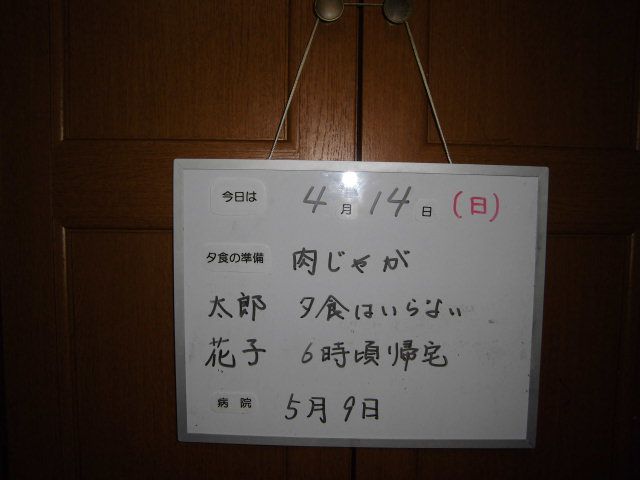 今日は 4月14日 (日)
夕食の準備 肉じゃが
太郎 夕食はいらない
花子 6時頃帰宅
病院 5月9日